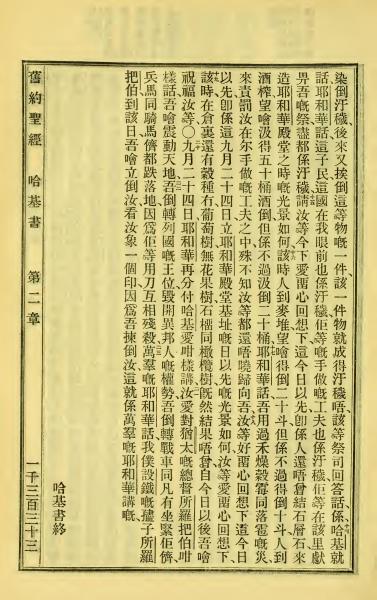 染倒汙穢後來又挨倒這等物嘅一件該一件物就成得汙穢唔該等祭司回答話係哈基就
話耶和華話這子民這國在我眼前也係汙穢佢等嘅手做嘅工夫也係汙穢佢等在該里獻
畀吾嘅祭盡都係汙穢請汝等今下愛畱心回想下這今日以先卽係人還唔曾結石層石來
造耶和華殿堂之時嘅光景如何該時人到麥堆望噲得倒二十斗但係不過得倒十斗人到
酒榨望噲汲得五十桶酒倒但係不過汲倒二十桶耶和華話吾用過禾燥穀霉同落雹嘅災
來責罰汝在尔手做嘅工夫之中殊不知汝等都還唔曉歸向吾汝等好畱心回想下這今日
以先卽係這九月二十四日立耶和華殿堂基址嘅日以先嘅光景如何汝等愛畱心回想下
該時在倉裏還有穀種冇葡萄樹無花果樹石榴同橄欖樹旣然結果唔曾自今日以後吾噲
祝福汝等〇九月二十四日耶和華再分付哈基愛咁樣講汝愛對猶太嘅總督所羅把伯咁
樣話吾噲震動天地吾倒轉列國嘅王位毀開異邦人嘅權勢吾倒轉戰車同凡有坐緊佢儕
兵馬同騎馬儕都跌落地因爲佢等用刀互相殘殺萬羣嘅耶和華話我僕設鐵嘅子所羅
把伯到該日吾噲立倒汝看汝象一個印因爲吾揀倒汝這就係萬羣嘅耶和華講嘅
哈基書終
舊約聖經 哈基書 第二章 一千三百三十三